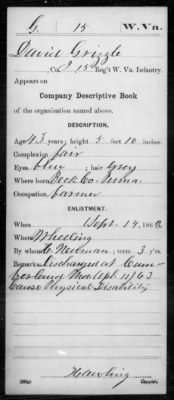 G 15 W. Va.
David Grizzle
Co. I 15 Reg't W. Va. Infantry.
Appears on
Company Descriptive Book
of the organization named above.
DESCRIPTION.
Age 43 years; height 5 feet 10 inches.
Complexion fair
Eyes blue ; hair Grey
Where born Penna.
Occupation farmer
ENLISTMENT.
When Sept. 14, 1862
Where Wheeling
By whom Neuman ; term 3 y'rs.
Remarks: Discharged at Cum-
berland Md. Sept. 11/63
Cause Physical Disability
Copyist.